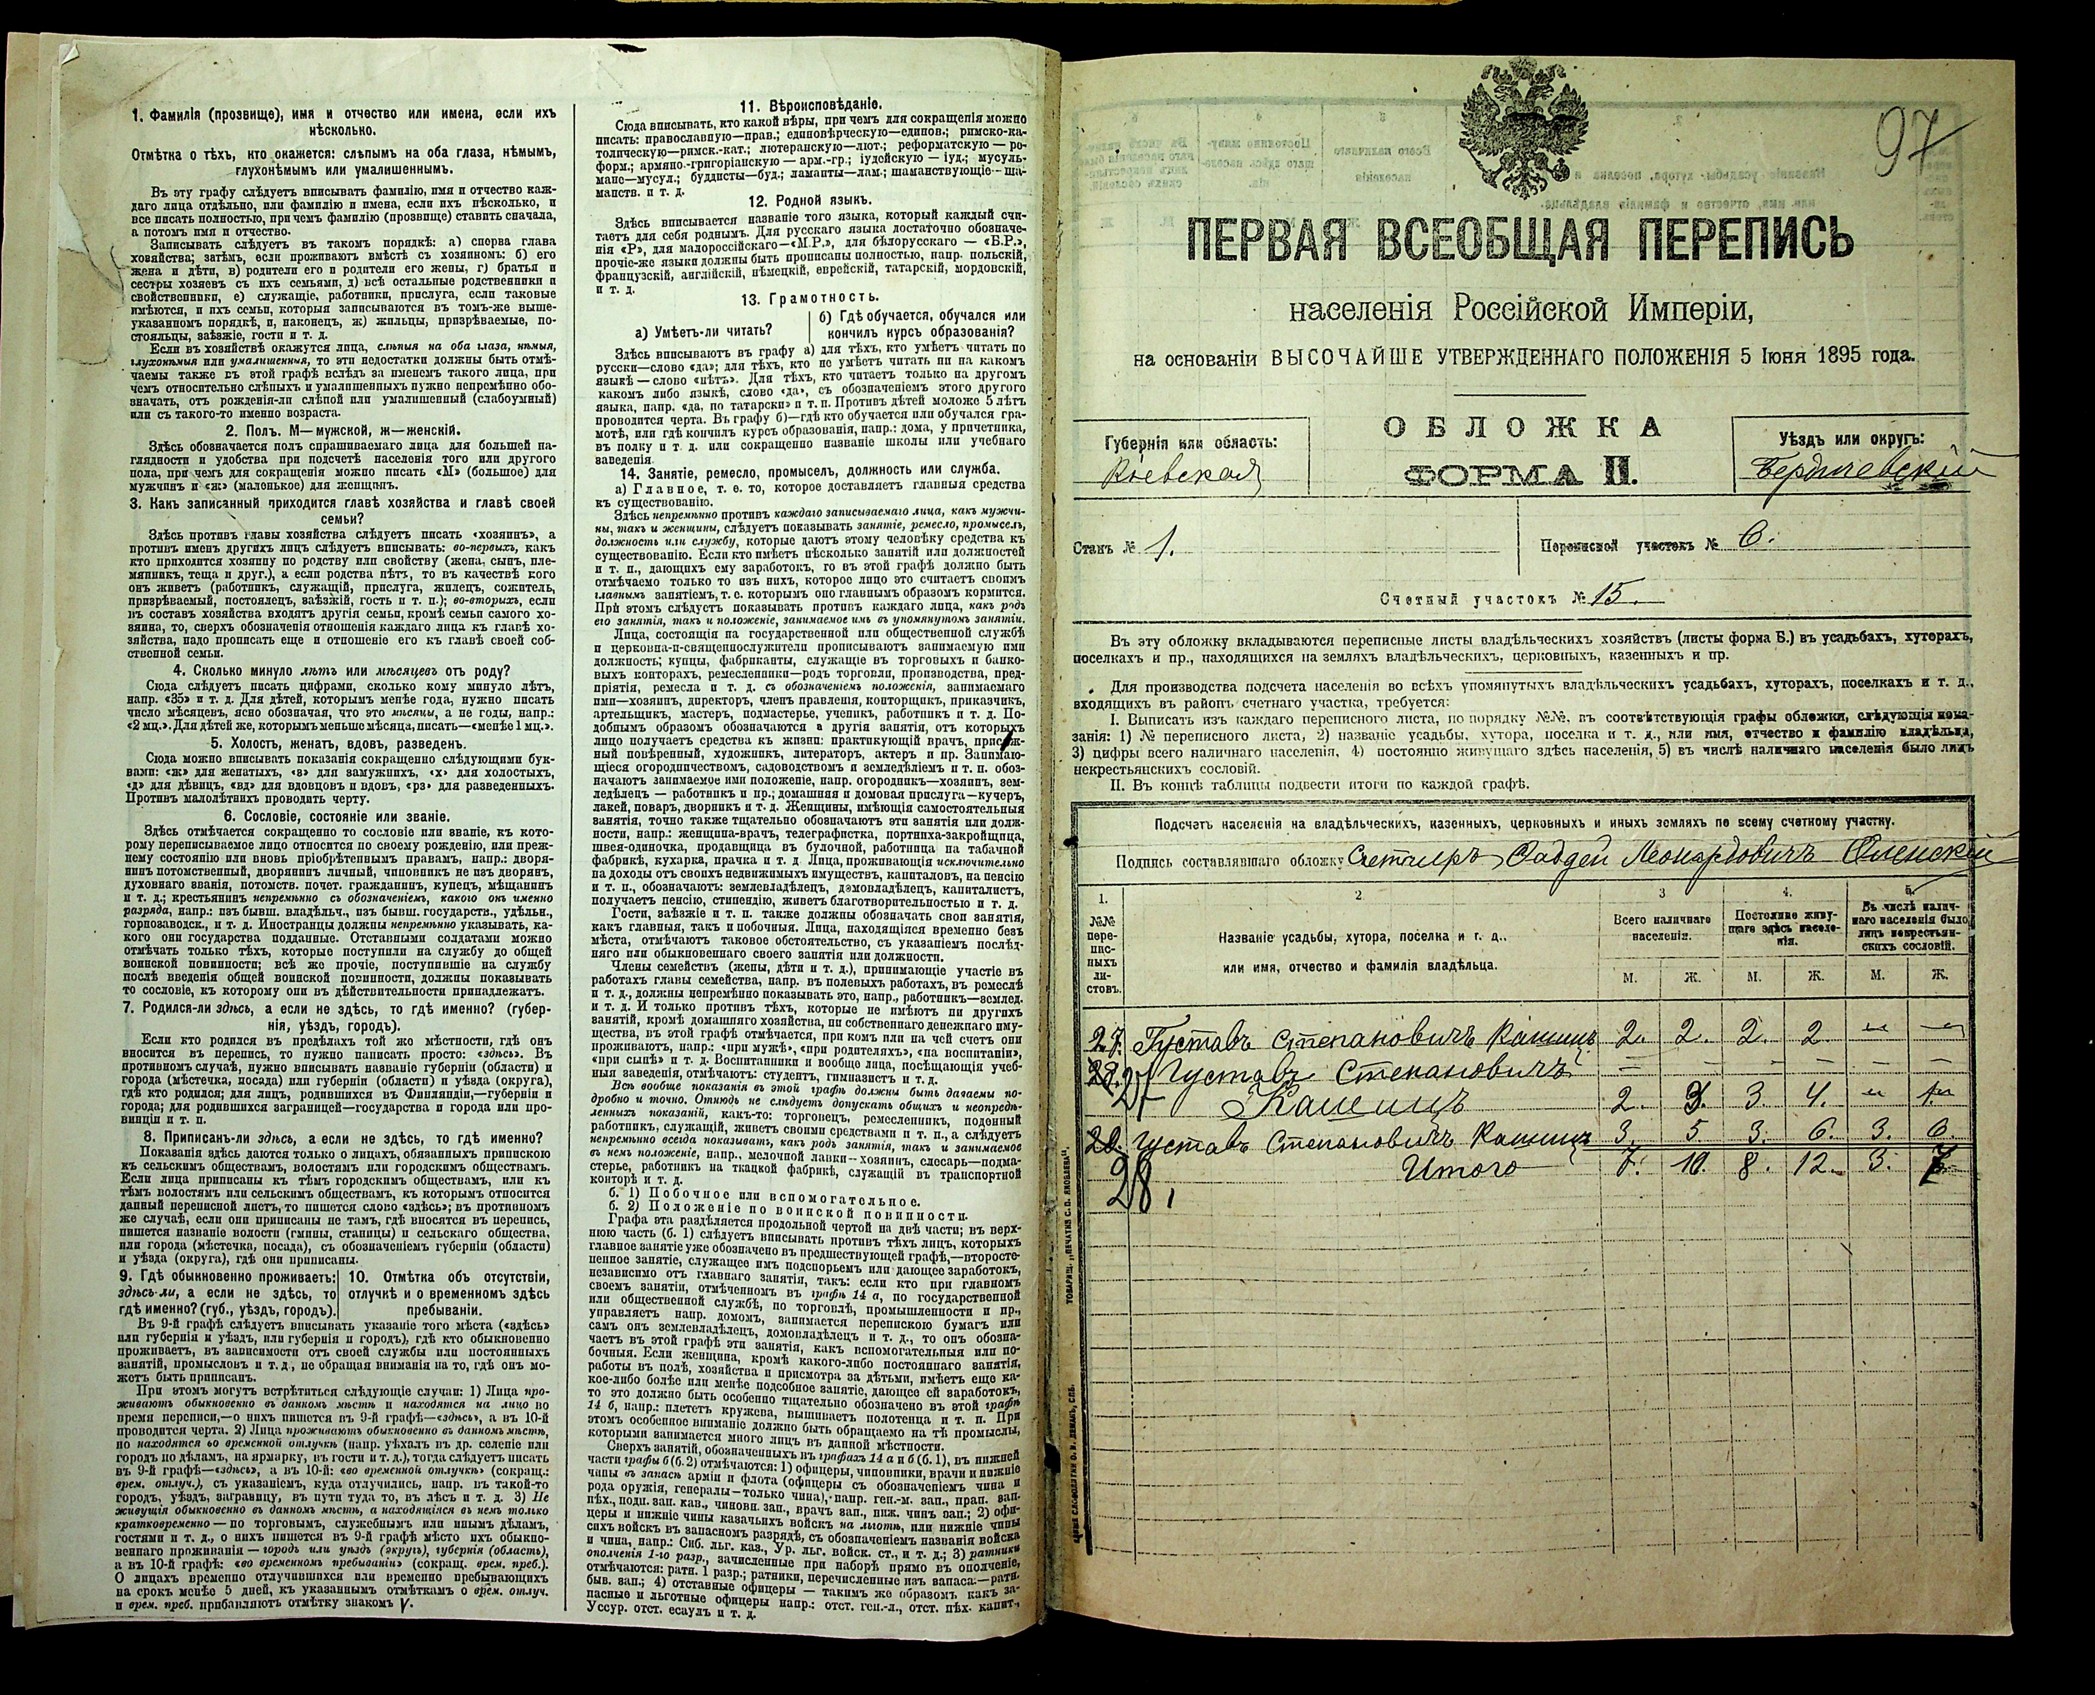 1. Фамилія (прозвище), имя и отчество или имена, если ихъ
нѣсколько.
Отмѣтка о тѣхъ, кто окажется: слѣпымъ на оба глаза, нѣмымъ,
глухонѣмымъ или умалишеннымъ.
Въ эту графу слѣдуетъ вписывать фамилію, имя и отчество каж-
даго лица отдѣльно, или фамилію и имена, если ихъ нѣсколько, и
все писать полностью, при чемъ фамилію (прозвище) ставить сначала,
а потомъ имя и отчество.
Записывать слѣдуетъ въ такомъ порядкѣ: а) сперва глава
хозяйства; затѣмъ, если проживаютъ вмѣстѣ съ хозяиномъ: б) его
жена и дѣти, в) родители его и родители его жены, г) братья и
сестры хозяевъ съ ихъ семьями, д) всѣ остальные родственники и
свойственники, е) служащіе, работники, прислуга, если таковые
имѣются, и ихъ семьи, которыя записываются въ томъ-же выше-
указанномъ порядкѣ, и, наконецъ, ж) жильцы, призрѣваемые, по-
стояльцы, заѣзжіе, гости и т. д.
Если въ хозяйствѣ окажутся лица, слѣпыя на оба глаза, нѣмыя,
глухонѣмыя или умалишенныя, то эти недостатки должны быть отмѣ-
чаемы также въ этой графѣ вслѣдъ за именемъ такого лица, при
чемъ относительно слѣпыхъ и умалишенныхъ нужно непремѣнно обо-
значать, отъ рожденія-ли слѣпой или умалишенный (слабоумный)
или съ такого-то именно возраста.
2. Полъ. М—мужской, ж—женскій.
Здѣсь обозначается полъ спрашиваемаго лица для большей на-
глядности и удобства при подсчетѣ населенія того или другого
пола, при чемъ для сокращенія можно писать «М» (большое) для
мужчинъ и «ж» (маленькое) для женщинъ.
3. Какъ записанный приходится главѣ хозяйства и главѣ своей
семьи?
Здѣсь противъ главы хозяйства слѣдуетъ писать «хозяинъ», а
противъ именъ другихъ лицъ слѣдуетъ вписывать: во-первыхъ, какъ
кто приходится хозяину по родству или свойству (жена, сынъ, пле-
мянникъ, теща и друг.), а если родства нѣтъ, то въ качествѣ кого
онъ живетъ (работникъ, служащій, прислуга, жилецъ, сожитель,
призрѣваемый, постоялецъ, заѣзжій, гость и т. п.); во-вторыхъ, если
въ составъ хозяйства входятъ другія семьи, кромѣ семьи самого хо-
зяина, то, сверхъ обозначенія отношенія каждаго лица къ главѣ хо-
зяйства, надо прописать еще и отношеніе его къ главѣ своей соб-
ственной семьи.
4. Сколько минуло лѣтъ или мѣсяцевъ отъ роду?
Сюда слѣдуетъ писать цифрами, сколько кому минуло лѣтъ,
напр. «35» и т. д. Для дѣтей, которымъ менѣе года, нужно писать
число мѣсяцевъ, ясно обозначая, что это мѣсяцы, а не годы, напр.:
«2 мц.». Для дѣтей же, которымъ меньше мѣсяца, писать—«менѣе 1 мц.».
5. Холостъ, женатъ, вдовъ, разведенъ.
Сюда можно вписывать показанія сокращенно слѣдующими бук-
вами: «ж» для женатыхъ, «з» для замужнихъ, «х» для холостыхъ,
«д» для дѣвицъ, «вд» для вдовцовъ и вдовъ, «рз» для разведенныхъ.
Противъ малолѣтнихъ проводить черту.
6. Сословіе, состояніе или званіе.
Здѣсь отмѣчается сокращенно то сословіе или званіе, къ кото-
рому переписываемое лицо относится по своему рожденію, или преж-
нему состоянію или вновь пріобрѣтеннымъ правамъ, напр.: дворя-
нинъ потомственный, дворянинъ личный, чиновникъ не изъ дворянъ,
духовнаго званія, потомств. почет. гражданинъ, купецъ, мѣщанинъ
и т. д.; крестьянинъ непремѣнно съ обозначеніемъ, какого онъ именно
разряда, напр.: изъ бывш. владѣльч., изъ бывш. государств., удѣльн.,
горнозаводск., и т. д. Иностранцы должны непремѣнно указывать, ка-
кого они государства подданные. Отставными солдатами можно
отмѣчать только тѣхъ, которые поступили на службу до общей
воинской повинности; всѣ же прочіе, поступившіе на службу
послѣ введенія общей воинской повинности, должны показывать
то сословіе, къ которому они въ дѣйствительности принадлежатъ.
7. Родился-ли здѣсь, а если не здѣсь, то гдѣ именно? (губер-
нія, уѣздъ, городъ).
Если кто родился въ предѣлахъ той же мѣстности, гдѣ онъ
вносится въ перепись, то нужно написать просто: «здѣсь». Въ
противномъ случаѣ, нужно вписывать названіе губерніи (области) и
города (мѣстечка, посада) или губерніи (области) и уѣзда (округа),
гдѣ кто родился; для лицъ, родившихся въ Финляндіи,—губерніи и
города; для родившихся заграницей—государства и города или про-
винціи и т. п.
8. Приписанъ-ли здѣсь, а если не здѣсь, то гдѣ именно?
Показанія здѣсь даются только о лицахъ, обязанныхъ припискою
къ сельскимъ обществамъ, волостямъ или городскимъ обществамъ.
Если лица приписаны къ тѣмъ городскимъ обществамъ, или къ
тѣмъ волостямъ или сельскимъ обществамъ, къ которымъ относится
данный переписной листъ, то пишется слово «здѣсь»; въ противномъ
же случаѣ, если они приписаны не тамъ, гдѣ вносятся въ перепись,
пишется названіе волости (гмины, станицы) и сельскаго общества,
или города (мѣстечка, посада), съ обозначеніемъ губерніи (области)
и уѣзда (округа), гдѣ они приписаны.
9. Гдѣ обыкновенно проживаетъ:
здѣсь-ли, а если не здѣсь, то
гдѣ именно? (губ., уѣздъ, городъ).
10. Отмѣтка объ отсутствіи,
отлучкѣ и о временномъ здѣсь
пребываніи.
Въ 9-й графѣ слѣдуетъ вписывать указаніе того мѣста («здѣсь»
или губернія и уѣздъ, или губернія и городъ), гдѣ кто обыкновенно
проживаетъ, въ зависимости отъ своей службы или постоянныхъ
занятій, промысловъ и т. д., не обращая вниманія на то, гдѣ онъ мо-
жетъ быть приписанъ.
При этомъ могутъ встрѣтиться слѣдующіе случаи: 1) Лица про-
живаютъ обыкновенно въ данномъ мѣстѣ и находятся на лицо во
время переписи,—о нихъ пишется въ 9-й графѣ—«здѣсь», а въ 10-й
проводится черта. 2) Лица проживаютъ обыкновенно въ данномъ мѣстѣ,
но находятся во временной отлучкѣ (напр. уѣхалъ въ др. селеніе или
городъ по дѣламъ, на ярмарку, въ гости и т. д.), тогда слѣдуетъ писать
въ 9-й графѣ—«здѣсь», а въ 10-й: «во временной отлучкѣ» (сокращ.:
врем. отлуч.), съ указаніемъ, куда отлучились, напр. въ такой-то
городъ, уѣздъ, заграницу, въ пути туда то, въ лѣсъ и т. д. 3) Не
живущія обыкновенно въ данномъ мѣстѣ, а находящіяся въ немъ только
кратковременно—по торговымъ, служебнымъ или инымъ дѣламъ,
гостями и т. д., о нихъ пишется въ 9-й графѣ мѣсто ихъ обыкно-
веннаго проживанія—городъ или уѣздъ (округъ), губернія (область),
а въ 10-й графѣ: «во временномъ пребываніи» (сокращ. врем. преб.).
О лицахъ временно отлучившихся или временно пребывающихъ
на срокъ менѣе 5 дней, къ указаннымъ отмѣткамъ о врем. отлуч.
и врем. преб. прибавляютъ отмѣтку знакомъ V.
11. Вѣроисповѣданіе.
Сюда вписывать, кто какой вѣры, при чемъ для сокращенія можно
писать: православную—прав.; единовѣрческую—единов.; римско-ка-
толическую—римск.-кат.; лютеранскую—лют.; реформатскую—ре-
форм.; армяно-григоріанскую—арм.-гр.; іудейскую—іуд.; мусуль-
мане—мусул.; буддисты—буд.; ламаиты—лам.; шаманствующіе—ша-
манств. и т. д.
12. Родной языкъ.
Здѣсь вписывается названіе того языка, который каждый счи-
таетъ для себя роднымъ. Для русскаго языка достаточно обозначе-
нія «Р», для малороссійскаго—«М.Р.», для бѣлорусскаго — «Б.Р.»,
прочіе-же языки должны быть прописаны полностью, напр. польскій,
французскій, англійскій, нѣмецкій, еврейскій, татарскій, мордовскій,
и т. д.
13. Грамотность.
а) Умѣетъ-ли читать?
б) Гдѣ обучается, обучался или
кончилъ курсъ образованія?
Здѣсь вписываютъ въ графу а) для тѣхъ, кто умѣетъ читать по
русски—слово «да»; для тѣхъ, кто не умѣетъ читать ни на какомъ
языкѣ—слово «нѣтъ». Для тѣхъ, кто читаетъ только на другомъ
какомъ либо языкѣ, слово «да», съ обозначеніемъ этого другого
языка, напр. «да, по татарски» и т. п. Противъ дѣтей моложе 5 лѣтъ
проводится черта. Въ графу б)—гдѣ кто обучается или обучался гра-
мотѣ, или гдѣ кончилъ курсъ образованія, напр.: дома, у причетника,
въ полку и т. д. или сокращенно названіе школы или учебнаго
заведенія.
14. Занятіе, ремесло, промыселъ, должность или служба.
а) Главное, т. е. то, которое доставляетъ главныя средства
къ существованію.
Здѣсь непремѣнно противъ каждаго записываемаго лица, какъ мужчи-
ны, такъ и женщины, слѣдуетъ показывать занятіе, ремесло, промыселъ,
должность или службу, которые даютъ этому человѣку средства къ
существованію. Если кто имѣетъ нѣсколько занятій или должностей
и т. п., дающихъ ему заработокъ, то въ этой графѣ должно быть
отмѣчаемо только то изъ нихъ, которое лицо это считаетъ своимъ
главнымъ занятіемъ, т. е. которымъ оно главнымъ образомъ кормится.
При этомъ слѣдуетъ показывать противъ каждаго лица, какъ родъ
его занятія, такъ и положеніе, занимаемое имъ въ упомянутомъ занятіи.
Лица, состоящія на государственной или общественной службѣ
и церковно-и-священнослужители прописываютъ занимаемую ими
должность; купцы, фабриканты, служащіе въ торговыхъ и банко-
выхъ конторахъ, ремесленники—родъ торговли, производства, пред-
пріятія, ремесла и т. д. съ обозначеніемъ положенія, занимаемаго
ими—хозяинъ, директоръ, членъ правленія, конторщикъ, приказчикъ,
артельщикъ, мастеръ, подмастерье, ученикъ, работникъ и т. д. По-
добнымъ образомъ обозначаются и другія занятія, отъ которыхъ
лицо получаетъ средства къ жизни: практикующій врачъ, присяж-
ный повѣренный, художникъ, литераторъ, актеръ и пр. Занимаю-
щіеся огородничествомъ, садоводствомъ и земледѣліемъ и т. п. обоз-
начаютъ занимаемое ими положеніе, напр. огородникъ—хозяинъ, зем-
ледѣлецъ — работникъ и пр.; домашняя и домовая прислуга—кучеръ,
лакей, поваръ, дворникъ и т. д. Женщины, имѣющія самостоятельныя
занятія, точно также тщательно обозначаютъ эти занятія или долж-
ности, напр.: женщина-врачъ, телеграфистка, портниха-закройщица,
швея-одиночка, продавщица въ булочной, работница на табачной
фабрикѣ, кухарка, прачка и т. д. Лица, проживающія исключительно
на доходы отъ своихъ недвижимыхъ имуществъ, капиталовъ, на пенсію
и т. п., обозначаютъ: землевладѣлецъ, домовладѣлецъ, капиталистъ,
получаетъ пенсію, стипендію, живетъ благотворительностью и т. д.
Гости, заѣзжіе и т. п. также должны обозначать свои занятія,
какъ главныя, такъ и побочныя. Лица, находящіяся временно безъ
мѣста, отмѣчаютъ таковое обстоятельство, съ указаніемъ послѣд-
няго или обыкновеннаго своего занятія или должности.
Члены семействъ (жены, дѣти и т. д.), принимающіе участіе въ
работахъ главы семейства, напр. въ полевыхъ работахъ, въ ремеслѣ
и т. д., должны непремѣнно показывать это, напр., работникъ—землед.
и т. д. И только противъ тѣхъ, которые не имѣютъ ни другихъ
занятій, кромѣ домашняго хозяйства, ни собственнаго денежнаго иму-
щества, въ этой графѣ отмѣчается, при комъ или на чей счетъ они
проживаютъ, напр.: «при мужѣ», «при родителяхъ», «на воспитаніи»,
«при сынѣ» и т. д. Воспитанники и вообще лица, посѣщающія учеб-
ныя заведенія, отмѣчаютъ: студентъ, гимназистъ и т. д.
Всѣ вообще показанія въ этой графѣ должны быть даваемы по-
дробно и точно. Отнюдь не слѣдуетъ допускать общихъ и неопредѣ-
ленныхъ показаній, какъ-то: торговецъ, ремесленникъ, поденный
работникъ, служащій, живетъ своими средствами и т. п., а слѣдуетъ
непремѣнно всегда показывать, какъ родъ занятія, такъ и занимаемое
въ немъ положеніе, напр., мелочной лавки—хозяинъ, слесарь—подма-
стерье, работникъ на ткацкой фабрикѣ, служащій въ транспортной
конторѣ и т. д.
б. 1) Побочное или вспомогательное.
б. 2) Положеніе по воинской повинности.
Графа эта раздѣляется продольной чертой на двѣ части; въ верх-
нюю часть (б. 1) слѣдуетъ вписывать противъ тѣхъ лицъ, которыхъ
главное занятіе уже обозначено въ предшествующей графѣ,—второсте-
пенное занятіе, служащее имъ подспорьемъ или дающее заработокъ,
независимо отъ главнаго занятія, такъ: если кто при главномъ
своемъ занятіи, отмѣченномъ въ графѣ 14 а, по государственной
или общественной службѣ, по торговлѣ, промышленности и пр.,
управляетъ напр. домомъ, занимается перепискою бумагъ или
самъ онъ землевладѣлецъ, домовладѣлецъ и т. д., то онъ обозна-
чаетъ въ этой графѣ эти занятія, какъ вспомогательныя или по-
бочныя. Если женщина, кромѣ какого-либо постояннаго занятія,
работы въ полѣ, хозяйства и присмотра за дѣтьми, имѣетъ еще ка-
кое-либо болѣе или менѣе подсобное занятіе, дающее ей заработокъ,
то это должно быть особенно тщательно обозначено въ этой графѣ
14 б, напр.: плететъ кружева, вышиваетъ полотенца и т. п. При
этомъ особенное вниманіе должно быть обращаемо на тѣ промыслы,
которыми занимается много лицъ въ данной мѣстности.
Сверхъ занятій, обозначенныхъ въ графахъ 14 а и б (б. 1), въ нижней
части графы б (б. 2) отмѣчаются: 1) офицеры, чиновники, врачи и нижніе
чины въ запасѣ арміи и флота (офицеры съ обозначеніемъ чина и
рода оружія, генералы—только чина), напр. ген.-м. зап., прап. зап.
пѣх., подп. зап. кав., чиновн. зап., врачъ зап., ниж. чинъ зап.; 2) офи-
церы и нижніе чины казачьихъ войскъ на льготѣ, или нижніе чины
сихъ войскъ въ запасномъ разрядѣ, съ обозначеніемъ названія войска
и чина, напр.: Сиб. льг. каз., Ур. льг. войск. ст., и т. д.; 3) ратники
ополченія 1-го разр., зачисленные при наборѣ прямо въ ополченіе,
отмѣчаются: ратн. 1 разр.; ратники, перечисленные изъ запаса:—ратн.
быв. зап.; 4) отставные офицеры — такимъ же образомъ какъ за-
пасные и льготные офицеры напр.: отст. ген.-л., отст. пѣх. капит.,
Уссур. отст. есаулъ и т. д.
97
ПЕРВАЯ ВСЕОБЩАЯ ПЕРЕПИСЬ
населенія Россійской Имперіи,
на основаніи ВЫСОЧАЙШЕ УТВЕРЖДЕННАГО ПОЛОЖЕНІЯ 5 Іюня 1895 года.
Губернія или область:
Кіевская
ОБЛОЖКА
ФОРМА II.
Уѣздъ или округъ:
Бердичевскій
Станъ № 1.
Переписной участокъ № 6.
Счетный участокъ № 15.
Въ эту обложку вкладываются переписные листы владѣльческихъ хозяйствъ (листы форма Б.) въ усадьбахъ, хуторахъ,
поселкахъ и пр., находящихся на земляхъ владѣльческихъ, церковныхъ, казенныхъ и пр.
Для производства подсчета населенія во всѣхъ упомянутыхъ владѣльческихъ усадьбахъ, хуторахъ, поселкахъ и т. д.,
входящихъ въ районъ счетнаго участка, требуется:
I. Выписать изъ каждаго переписного листа, по порядку №№, въ соотвѣтствующія графы обложки, слѣдующія пока-
занія: 1) № переписного листа, 2) названіе усадьбы, хутора, поселка и т. д., или имя, отчество и фамилію владѣльца,
3) цифры всего наличнаго населенія, 4) постоянно живущаго здѣсь населенія, 5) въ числѣ наличнаго населенія было лицъ
некрестьянскихъ сословій.
II. Въ концѣ таблицы подвести итоги по каждой графѣ.
Подсчетъ населенія на владѣльческихъ, казенныхъ, церковныхъ и иныхъ земляхъ по всему счетному участку.
Подпись составлявшаго обложку Счетчикъ Фаддей Леонардовичъ Оленскій
1. 2 3 4. 5.
№№ пере-пис-ныхъ ли-стовъ.
Названіе усадьбы, хутора, поселка и т. д.,
или имя, отчество и фамилія владѣльца.
Всего наличнаго населенія.
Постоянно живу-щаго здѣсь населе-нія.
Въ числѣ налич-наго населенія было лицъ некрестьян-скихъ сословій.
М. Ж. М. Ж. М. Ж.
27. Густавъ Степановичъ Кашицъ 2. 2. 2. 2. — —
27 Густавъ Степановичъ — — — — — —
Кашицъ 2. 3. 3. 4. „ 1.
28. Густавъ Степановичъ Кашицъ 3. 5. 3. 6. 3. 6.
28. Итого 7. 10. 8. 12. 3. 7.